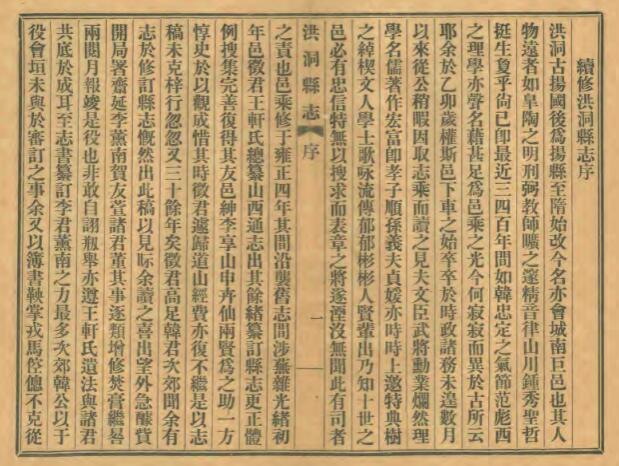 續修洪洞縣志序
洪洞古揚國後爲揚縣至隋始改今名亦會城南巨邑也其人
物遠者如皐陶之明刑弼教師曠之邃精音律山川鍾秀聖哲
挺生夐乎尙已卽最近三四百年間如韓忠定之氣節范彪西
之理學亦聲名藉甚足爲邑乘之光今何寂寂而異於古所云
耶余於乙卯歲權斯邑下車之始卒卒於時政諸務未遑數月
以來從公稍暇因取志乘而讀之見夫文臣武將勳業爛然理
學名儒著作宏富卽孝子順孫義夫貞媛亦時時上邀特典樹
之綽楔文人學士歌咏流傳郁郁彬彬人賢輩出乃知十世之
邑必有忠信特無以搜求而表章之將遂湮沒無聞此有司者
洪洞縣志 序 一
之責也邑乘修于雍正四年其間沿襲舊志間涉蕪雜光緒初
年邑徵君王軒氏總纂山西通志出其餘緒纂訂縣志更正體
例搜集完善復得其友邑紳李享山申卉仙兩賢爲之助一方
惇史於以觀成惜其時徵君遽歸道山經費亦復不繼是以志
稿未克梓行忽忽又三十餘年矣徵君高足韓君次郊聞余有
志於修訂縣志慨然出此稿以見眎余讀之喜出望外急醵貲
開局署齋延李薰南賀友萱諸君董其事逐類增修焚膏繼晷
兩閱月報竣是役也非敢自詡瓶擧亦遵王軒氏遺法與諸君
共底於成耳至志書纂訂李君薰南之力最多次郊韓公以于
役會垣未與於審訂之事余又以簿書鞅掌戎馬倥傯不克從